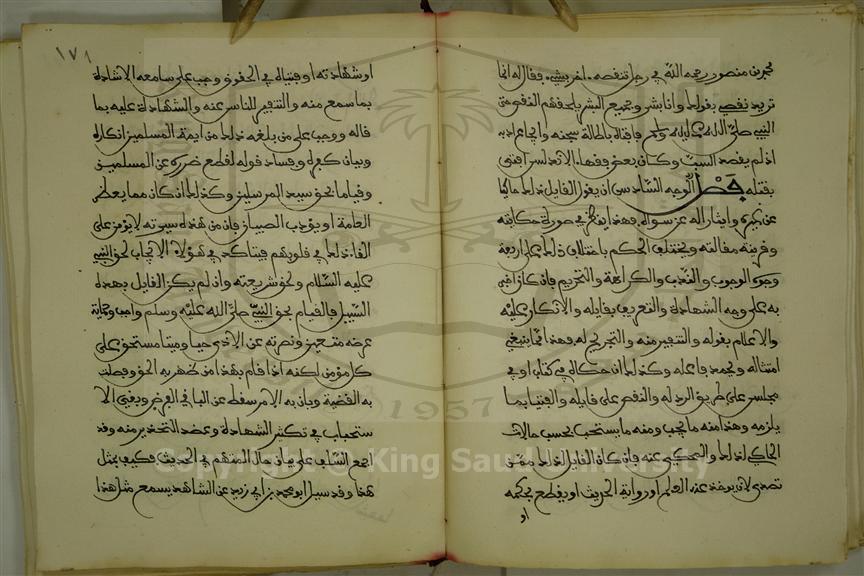 محمد بن منصور رحمه الله في رجل تنقصه آخر بشيء فقال له انما
تريد نقصي بقولك وانا بشر وجميع البشر يلحقهم النقص حتى
النبي صلى الله عليه وسلم فافتاه باطالة سجنه وايجاع ادبه
اذ لم يقصد السب وكان بعض فقهاء الاندلس افتى
بقتله فصل الوجه السادس ان يقول القايل ذلك حاكيا
عن غيره وايثارا له عن سواه فهذا ينظر في صورة حكايته
وقرينة مقالته ويختلف الحكم باختلاف ذلك على اربعة
وجوه الوجوب والندب والكراهة والتحريم فان كان اخبر
به على وجه الشهادة والتعريف بقايله والانكار عليه
والاعلام بقوله والتنفير منه والتجريح له فهذا مما ينبغي
امتثاله ويحمد فاعله وكذلك ان حكاه في كتاب او في
مجلس على طريق الرد له والنقض على قايله والفتيا بما
يلزمه وهذا منه ما يجب ومنه ما يستحب بحسب حالات
الحاكي لذلك والمحكي عنه فان كان القايل لذلك ممن
تصدى لان يوخذ عنه العلم او رواية الحديث او يقطع بحكمه
او
١٧٨
او شهادته او فتياه في الحقوق وجب على سامعه الاشادة
بما سمع منه والتنفير للناس عنه والشهادة عليه بما
قاله ووجب على من بلغه ذلك من ايمة المسلمين انكاره
وبيان كفره وفساد قوله لقطع ضرره عن المسلمين
وقياما بحق سيد المرسلين وكذلك ان كان ممن يعظ
العامة او يؤدب الصبيان فان من هذه سيرته لا يؤمن على
القاء ذلك في قلوبهم فيتاكد في هؤلاء الايجاب لحق النبي
عليه السلام ولحق شريعته وان لم يكن القايل بهذه
السبيل فالقيام بحق النبي صلى الله عليه وسلم واجب وحماية
عرضه متعين ونصرته عن الاذى حيا وميتا مستحق على
كل مؤمن لكنه اذا قام بهذا من ظهر به الحق وفصلت
به القضية وبان به الامر سقط عن الباقي الفرض وبقي الا
ستحباب في تكثير الشهادة وعضد التحذير منه وقد
اجمع السلف على بيان حال المتهم في الحديث فكيف بمثل
هذا وقد سيل ابو محمد بن ابي زيد عن الشاهد يسمع مثل هذا
1957
Copyright © King Saud University